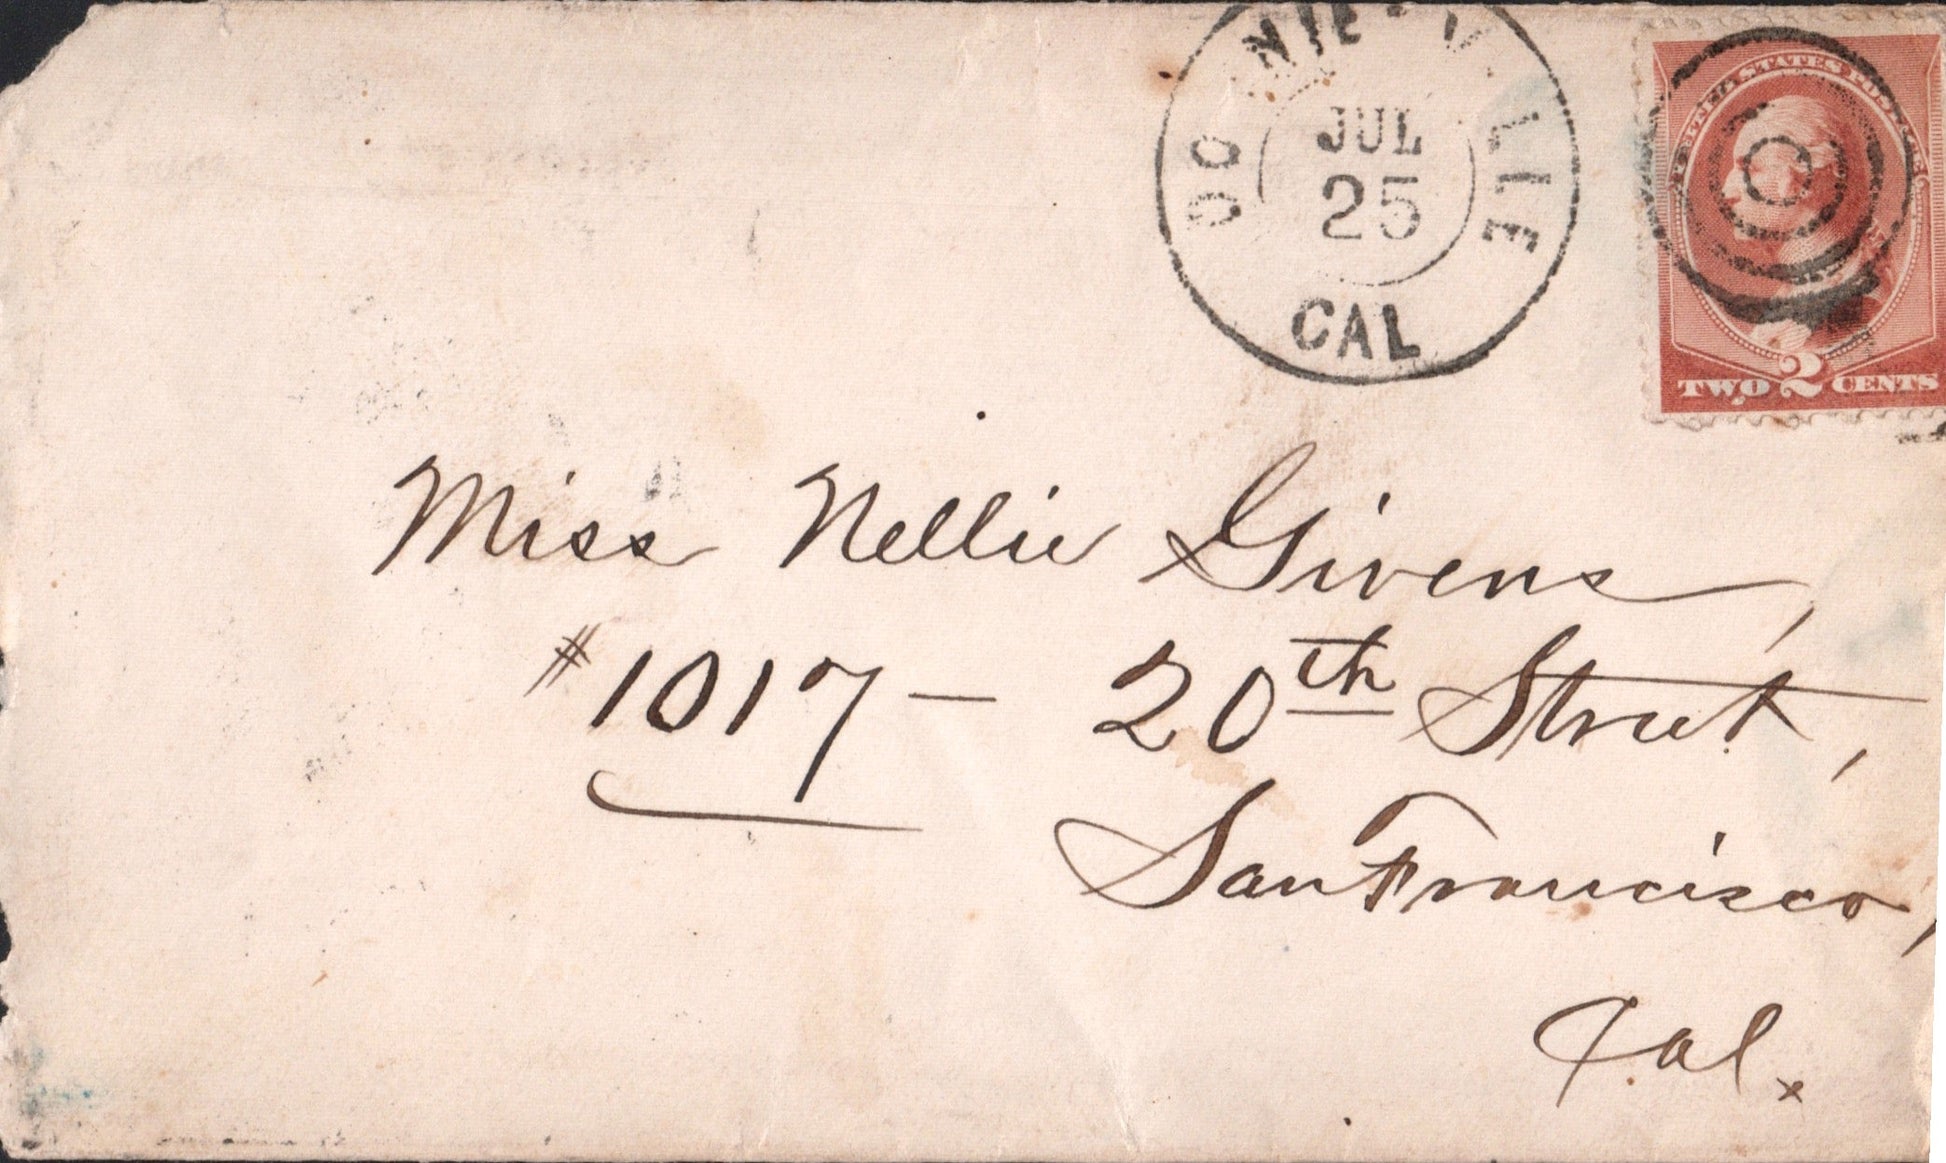 JUL
25
CAL
UNITED STATES POSTAGE
TWO 2 CENTS
Miss Nellie Givens,
#1017 — 20th Street,
San Francisco,
Cal.